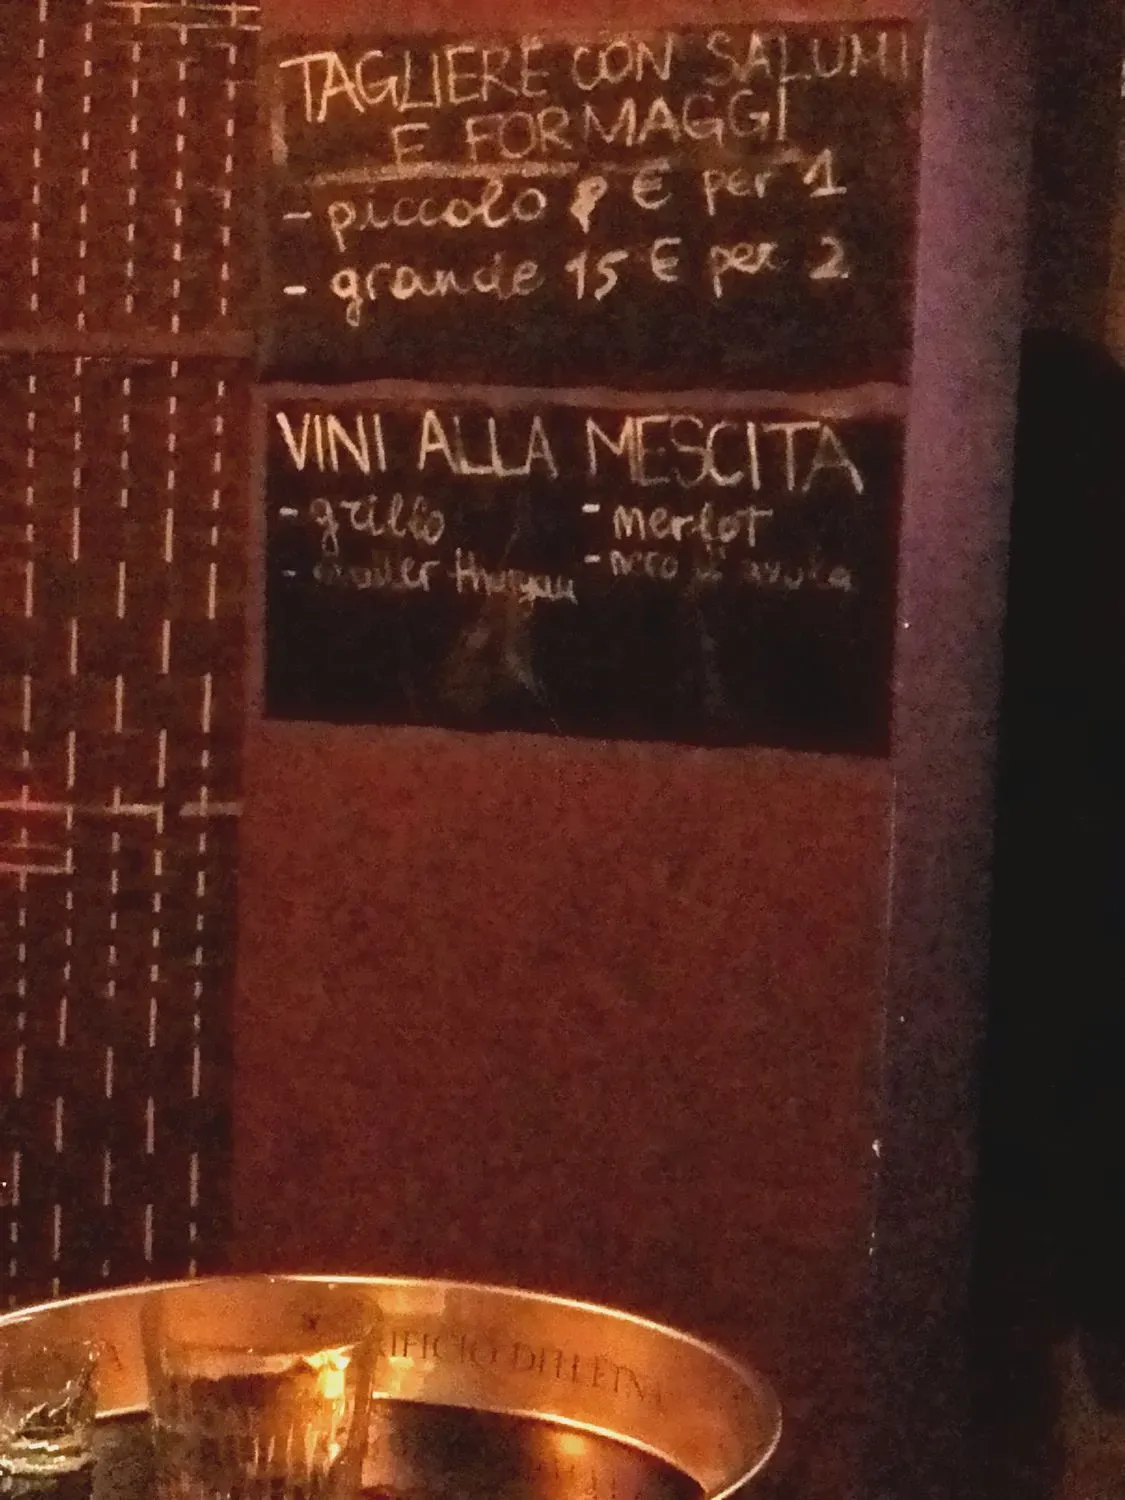 TAGLIERE CON SALUMI
E FORMAGGI
- piccolo 8 € per 1
- grande 15 € per 2
VINI ALLA MESCITA
- grillo
- muller thurgau
- merlot
- nero d'avola
DELL'ETNA